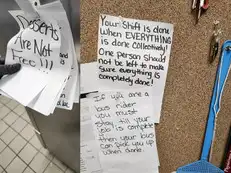 Desserts
Are Not
Free!!!
Your Shift is done
When EVERYTHING
is done collectively!
One person should
not be left to make
sure everything is
completely done!
If you are a
bus rider
you must
stay till your
job is complete
then your bus
can pick you up
when done.